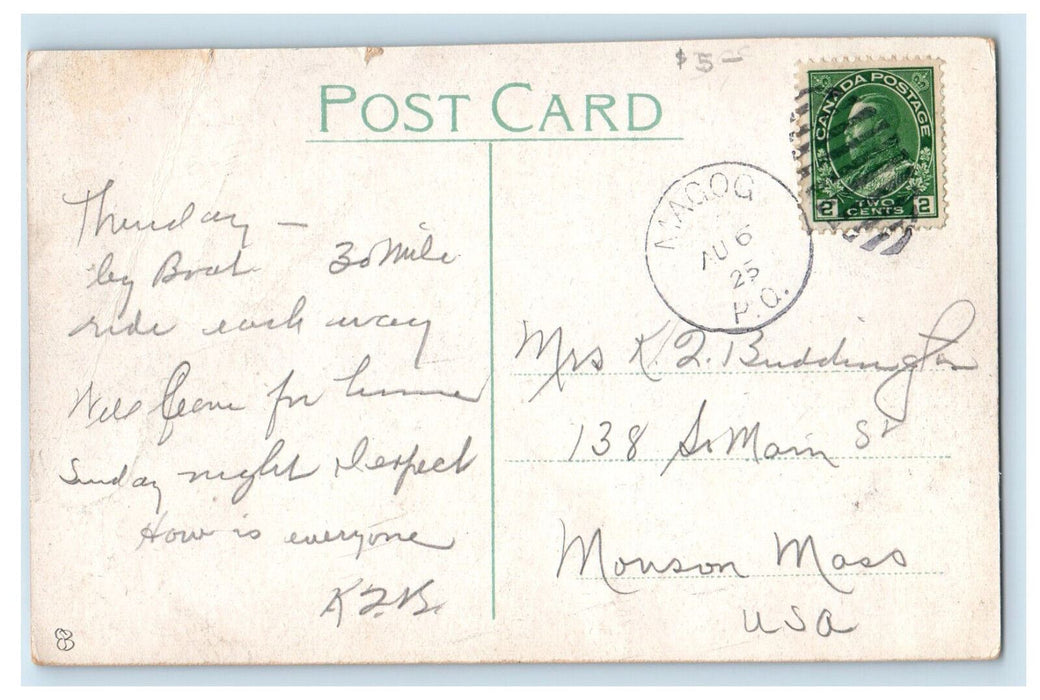 $5—
POST CARD
CANADA POSTAGE
2 TWO CENTS 2
MAGOG
AU 6
25
P.Q.
Thursday —
by Boat 30 Mile
ride each way
Will leave for home
Sunday night I expect
How is everyone
K.F.B.
Mrs K. F. Buddington
138 So Main St
Monson Mass
USA
8